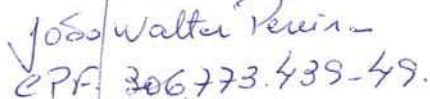 João Walter Pereira
CPF. 306.773.439-49.